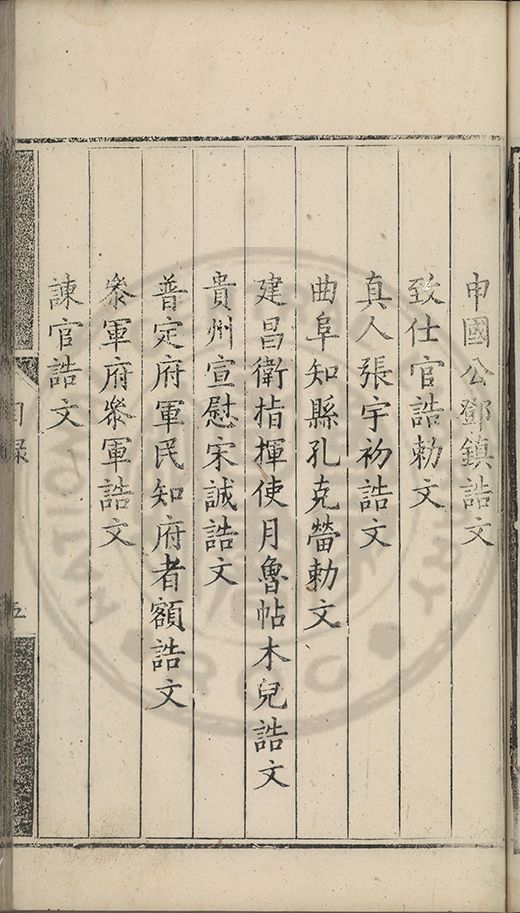 申國公鄧鎮誥文
致仕官誥勅文
真人張宇初誥文
曲阜知縣孔克㽦勅文
建昌衛指揮使月魯帖木兒誥文
貴州宣慰宋誠誥文
普定府軍民知府者額誥文
叅軍府叅軍誥文
諫官誥文
目錄
五